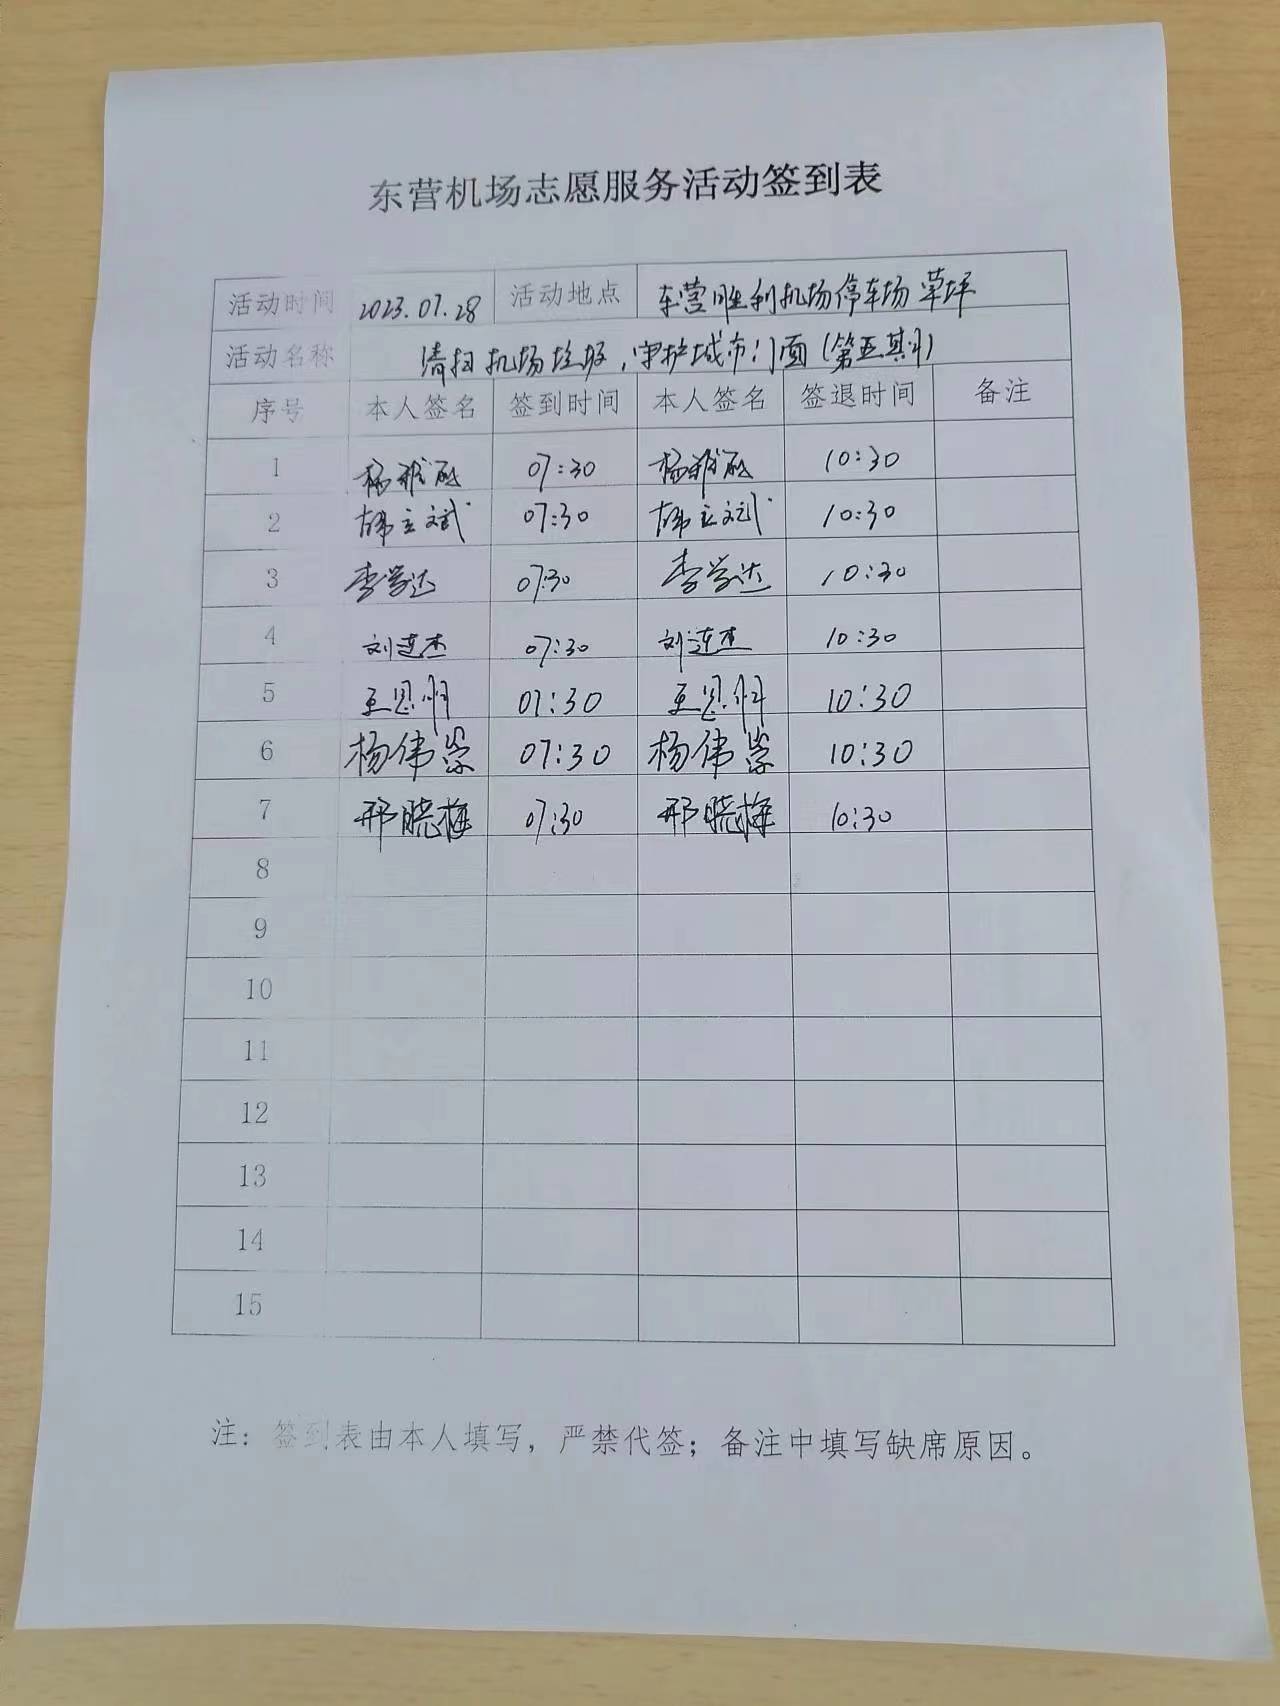 东营机场志愿服务活动签到表
活动时间 2023.07.28 活动地点 东营胜利机场停车场草坪
活动名称 清扫机场垃圾，守护城市门面（第五期）
序号 本人签名 签到时间 本人签名 签退时间 备注
1 07:30 10:30
2 韩立斌 07:30 韩立斌 10:30
3 李学达 07:30 李学达 10:30
4 刘连杰 07:30 刘连杰 10:30
5 07:30 10:30
6 杨伟 07:30 杨伟 10:30
7 邢晓梅 07:30 邢晓梅 10:30
8
9
10
11
12
13
14
15
注：签到表由本人填写，严禁代签；备注中填写缺席原因。